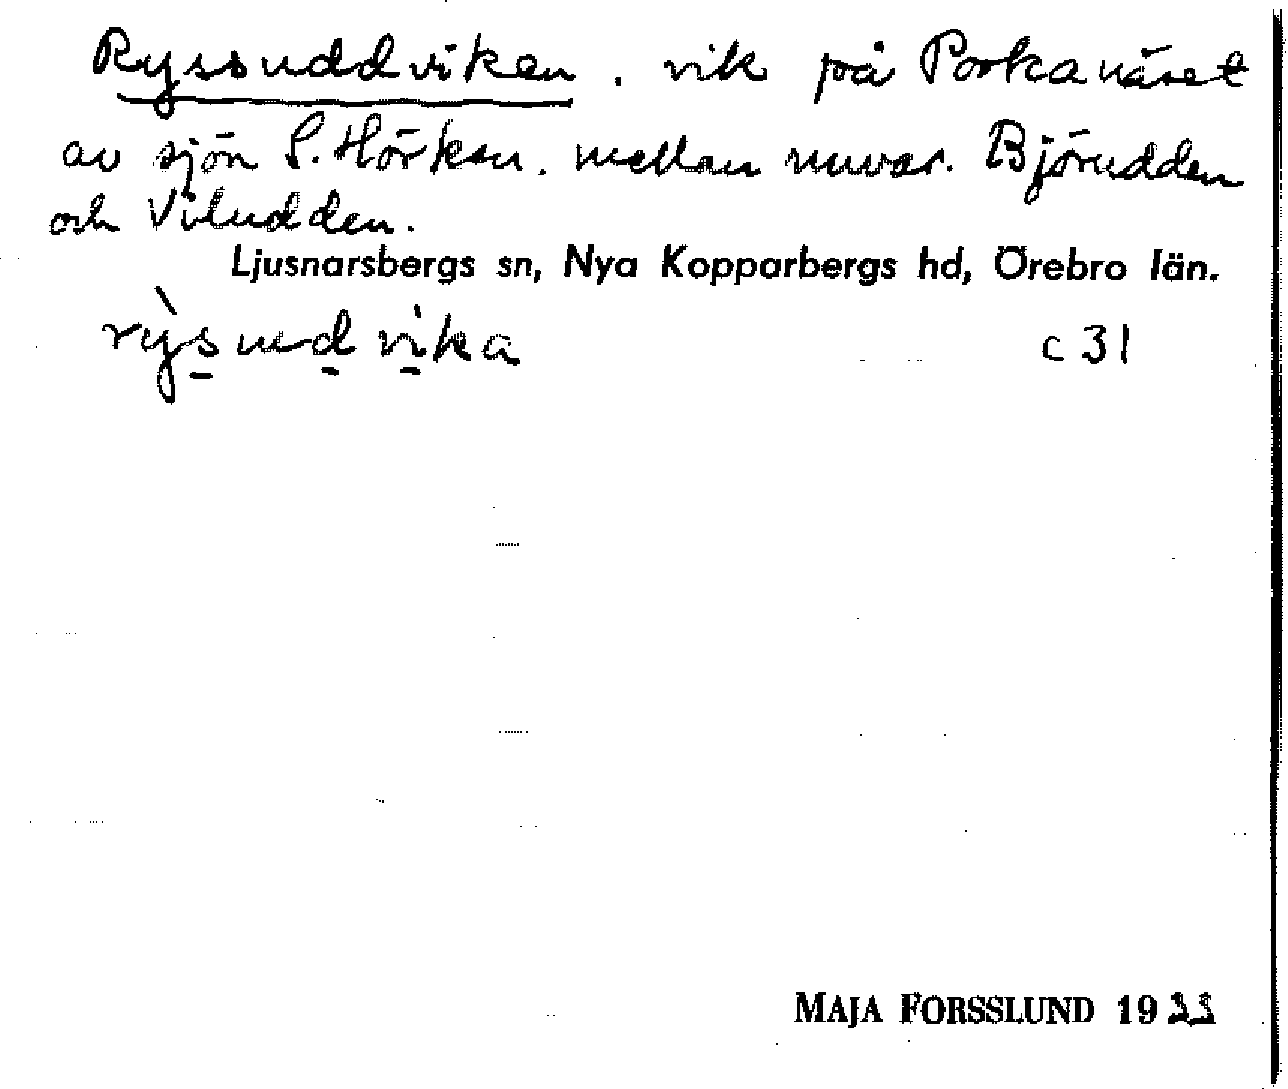 Ryssuddviken. vik på Porkanäset
av sjön S. Hörken. mellan nuvar. Björudden
och Viludden.
Ljusnarsbergs sn, Nya Kopparbergs hd, Örebro län.
rỳsuddvika c 31
MAJA FORSSLUND 19